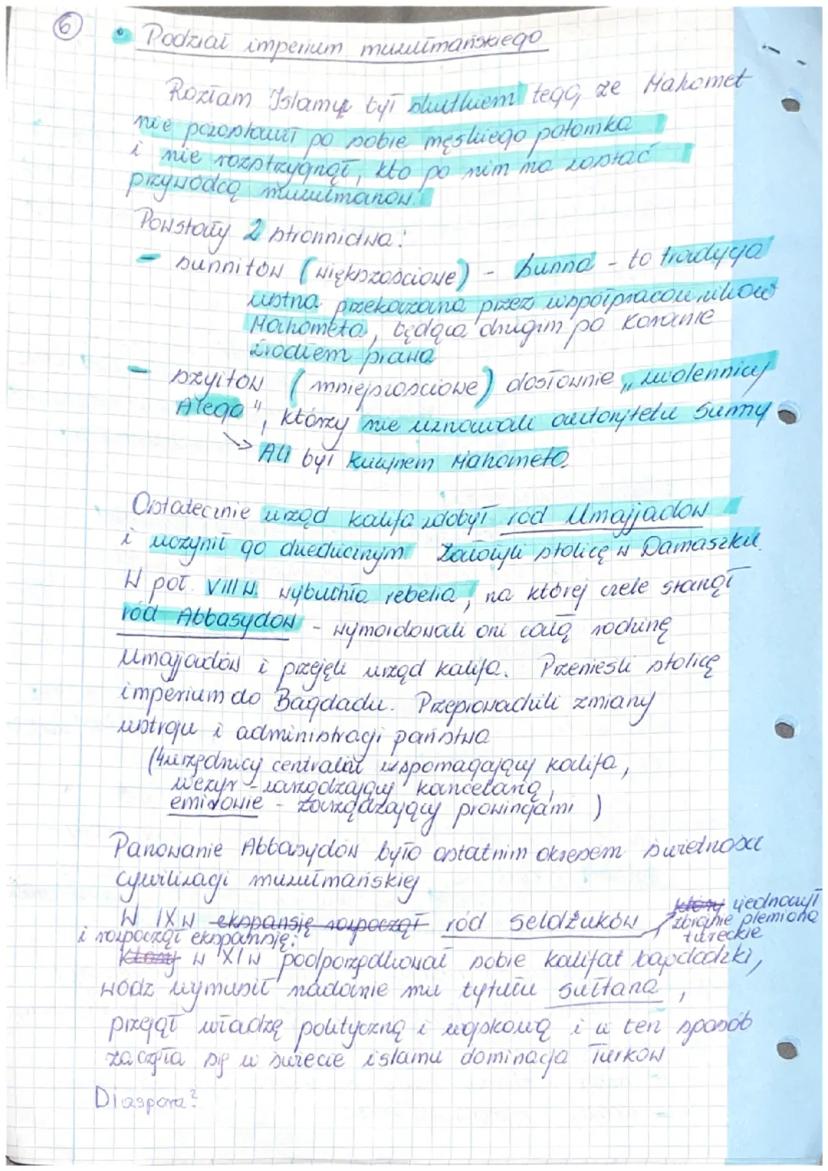 6
• Podział imperium muzułmańskiego
Rozłam Islamu był skutkiem tego, że Mahomet
nie pozostawił po sobie męskiego potomka
i nie rozstrzygnął, kto po nim ma zostać
przywódcą muzułmanów.
Powstały 2 stronnictwa:
- sunnitów (większościowe) - Sunna - to tradycja
ustna przekazana przez współpracowników
Mahometa, będąca drugim po Koranie
źródłem prawa
- szyitów (mniejszościowe) dosłownie „zwolennicy
Alego", którzy nie uznawali autorytetu Sunny
↳> Ali był kuzynem Mahometa.
Ostatecznie urząd kalifa zdobył ród Umajjadów
i uczynił go dziedzicznym Założyli stolicę w Damaszku.
W poł. VIII w. wybuchła rebelia, na której czele stanął
ród Abbasydów - wymordowali oni całą rodzinę
Umajjadów i przejęli urząd kalifa. Przenieśli stolicę
imperium do Bagdadu. Przeprowadzili zmiany
ustroju i administracji państwa
(urzędnicy centralni wspomagający kalifa,
wezyr - zarządzający kancelarią,
emirowie - zarządzający prowincjami)
Panowanie Abbasydów było ostatnim okresem świetności
cywilizacji muzułmańskiej
W IX w ekspansję rozpoczął ród Seldżuków
który zjednoczył
zbrojnie plemiona
tureckie
i rozpoczął ekspansję.
który w XI w podporządkował sobie kalifat bagdadzki,
wódz wymusił nadanie mu tytułu sułtana,
przejął władzę polityczną i wojskową i w ten sposób
zaczęła się w świecie islamu dominacja Turków
Diaspora?